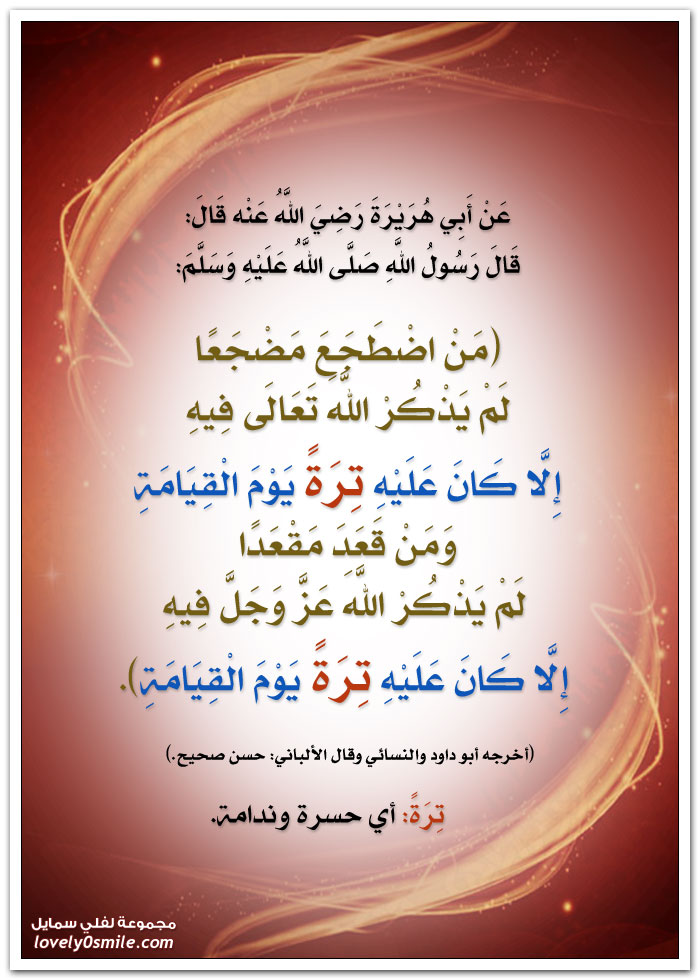 عَنْ أَبِي هُرَيْرَةَ رَضِيَ اللَّهُ عَنْه قَالَ:
قَالَ رَسُولُ اللَّهِ صَلَّى اللَّهُ عَلَيْهِ وَسَلَّمَ:
(مَنْ اضْطَجَعَ مَضْجَعًا
لَمْ يَذْكُرْ اللَّهَ تَعَالَى فِيهِ
إِلَّا كَانَ عَلَيْهِ تِرَةً يَوْمَ الْقِيَامَةِ
وَمَنْ قَعَدَ مَقْعَدًا
لَمْ يَذْكُرْ اللَّهَ عَزَّ وَجَلَّ فِيهِ
إِلَّا كَانَ عَلَيْهِ تِرَةً يَوْمَ الْقِيَامَةِ).
(أخرجه أبو داود والنسائي وقال الألباني: حسن صحيح.)
تِرَةً: أي حسرة وندامة.
مجموعة لفلي سمايل
lovely0smile.com